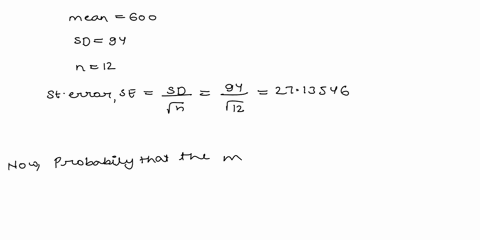 mean = 600
SD = 94
n = 12
St. error, SE = SD/√n = 94/√12 = 27.13546
Now, Probabily that the m